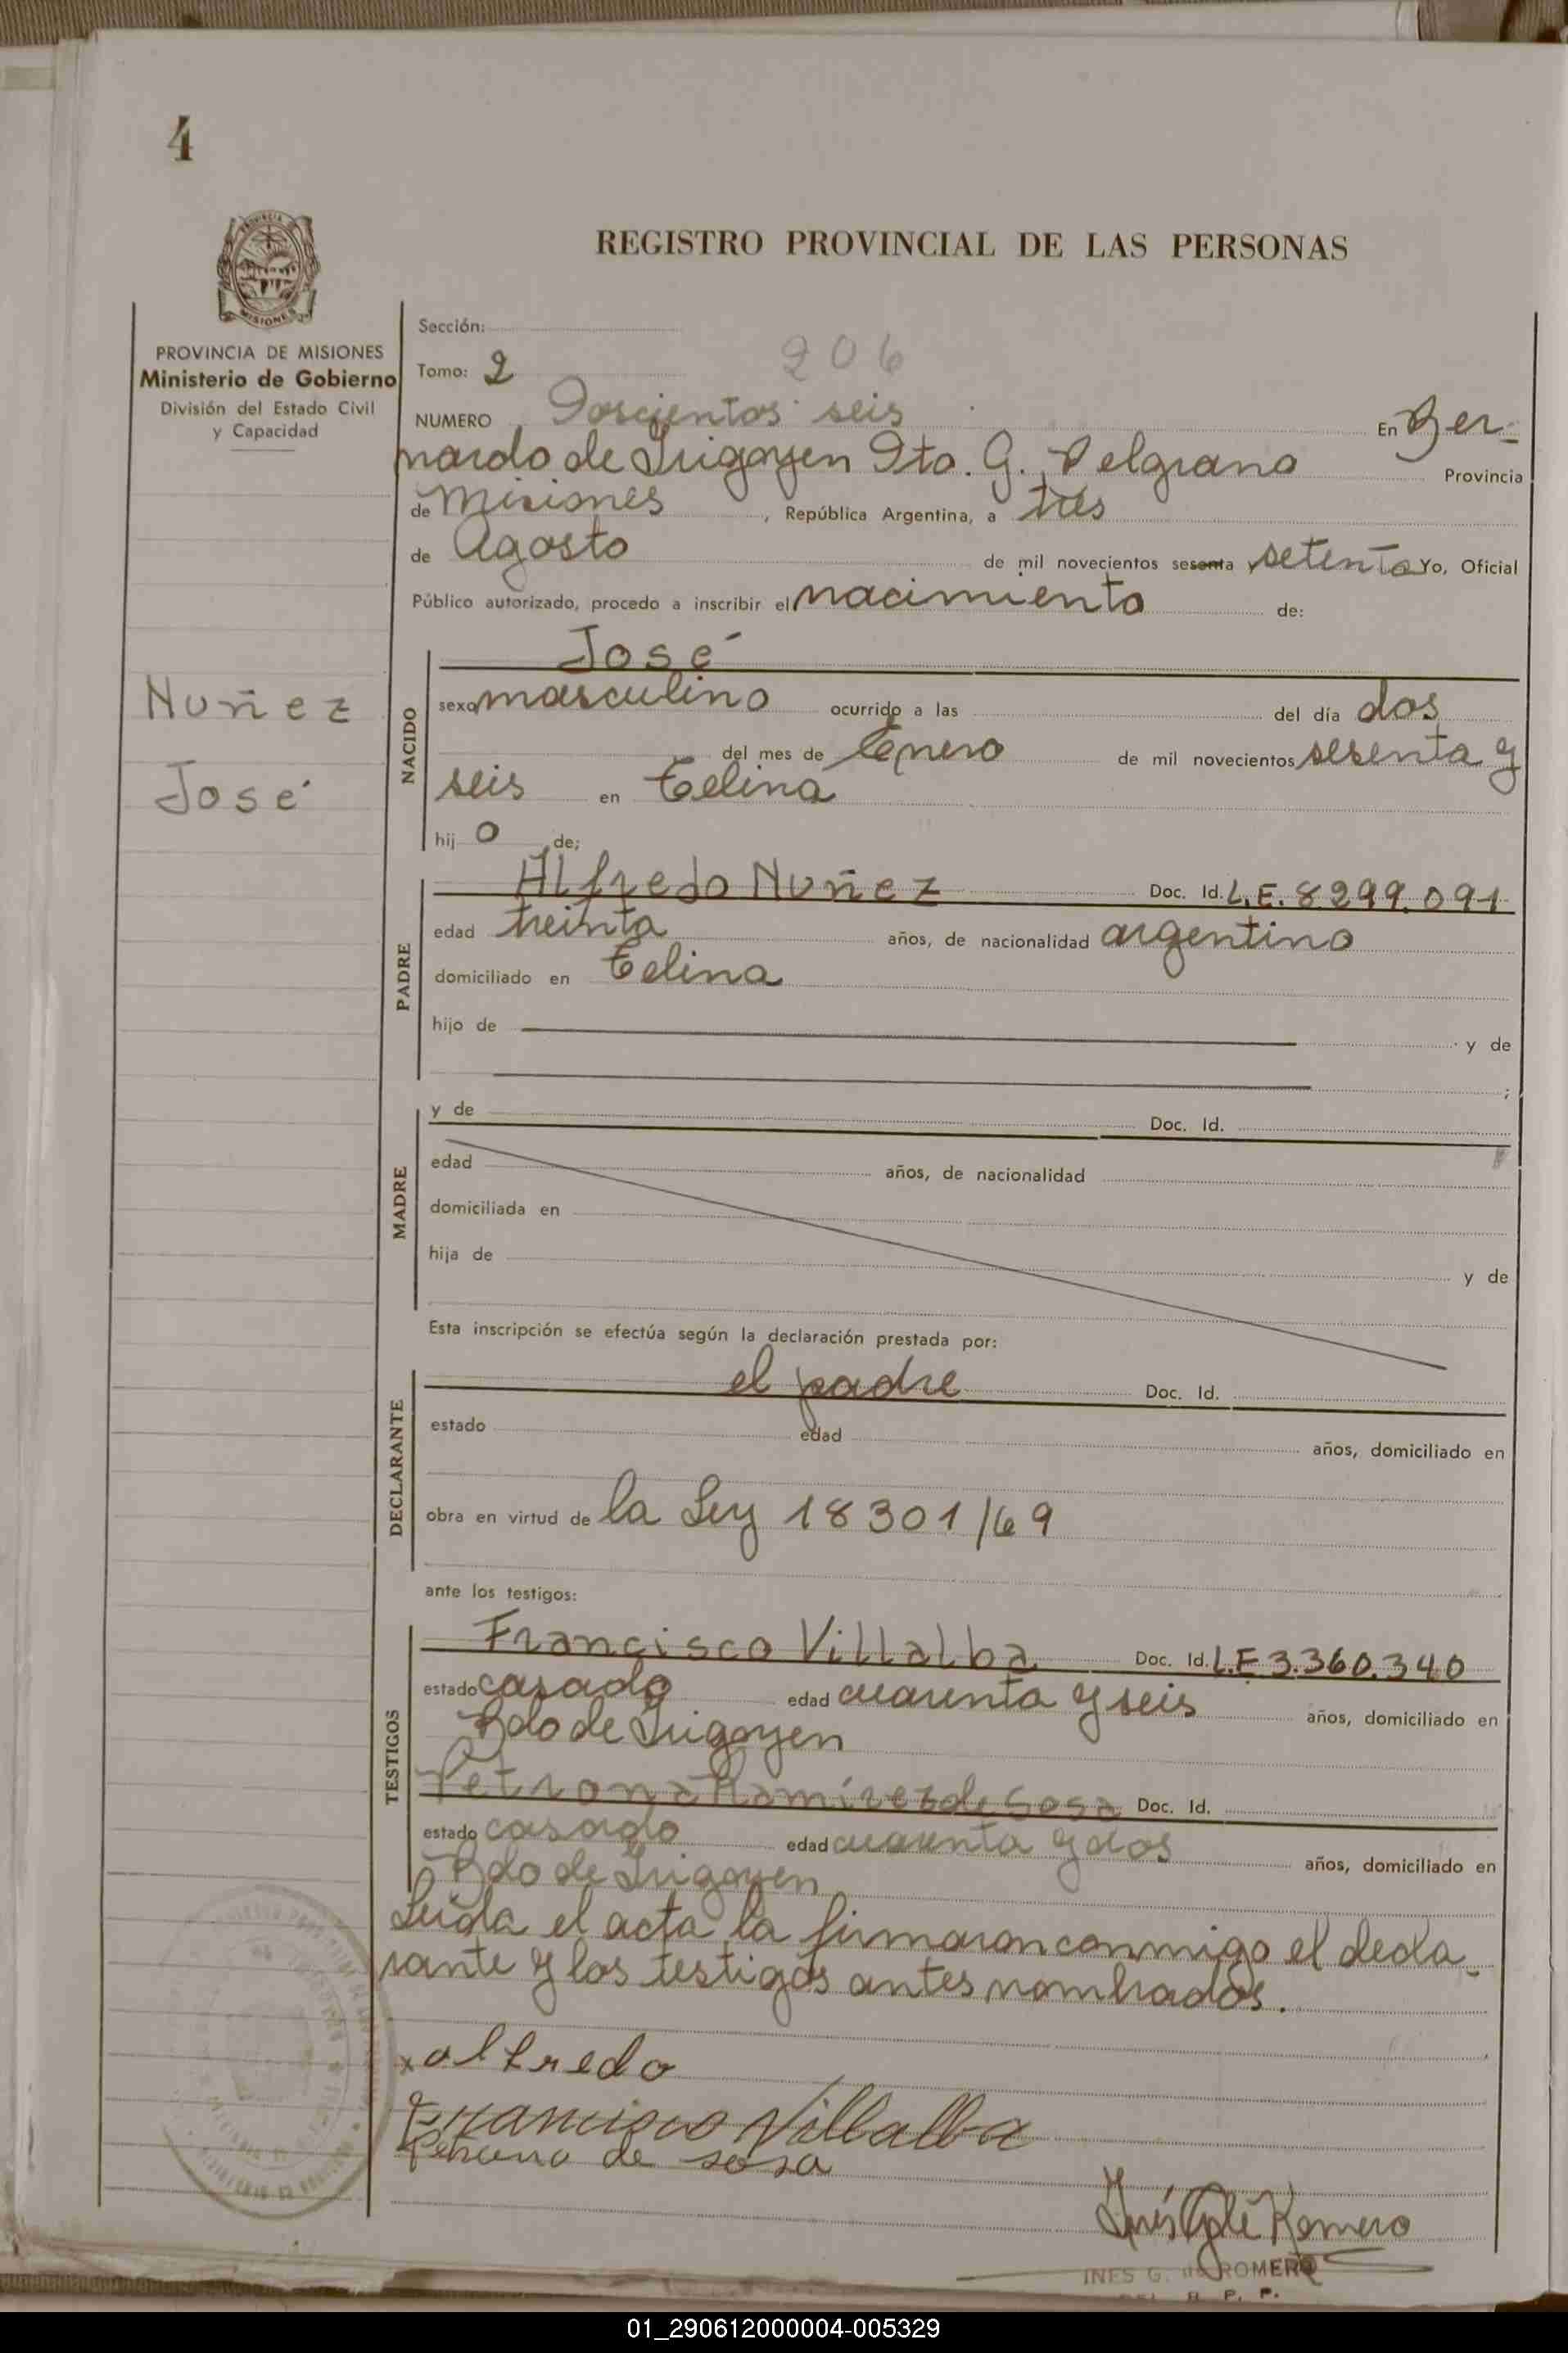 4
REGISTRO PROVINCIAL DE LAS PERSONAS
PROVINCIA
MISIONES
PROVINCIA DE MISIONES
Ministerio de Gobierno
División del Estado Civil
y Capacidad
Nuñez
José
Sección:
Tomo: 2
206
NUMERO Doscientos seis En Ber-
nardo de Irigoyen Dto. G. Belgrano Provincia
de Misiones, República Argentina, a tres
de Agosto de mil novecientos sesenta y setenta Yo, Oficial
Público autorizado, procedo a inscribir el nacimiento de:
NACIDO
José
sexo masculino ocurrido a las del día dos
del mes de Enero de mil novecientos sesenta y
seis en Celina
hij o de;
PADRE
Alfredo Nuñez Doc. Id. L.E. 8299.091
edad treinta años, de nacionalidad argentino
domiciliado en Celina
hijo de y de
;
MADRE
y de Doc. Id.
edad años, de nacionalidad
domiciliada en
hija de y de
Esta inscripción se efectúa según la declaración prestada por:
DECLARANTE
el padre Doc. Id.
estado edad años, domiciliado en
obra en virtud de la Ley 18301/69
ante los testigos:
TESTIGOS
Francisco Villalba Doc. Id. L.E 3.360.340
estado casado edad cuarenta y seis años, domiciliado en
Bdo de Irigoyen
Petrona Ramírez de Sosa Doc. Id.
estado casado edad cuarenta y dos años, domiciliado en
Bdo de Irigoyen
Leída el acta la firmaron conmigo el decla-
rante y los testigos antes nombrados.
x alfredo
Francisco Villalba
Petrona de sosa
Inés Romero
INES G. de ROMERO
R. P. P.
01_290612000004-005329